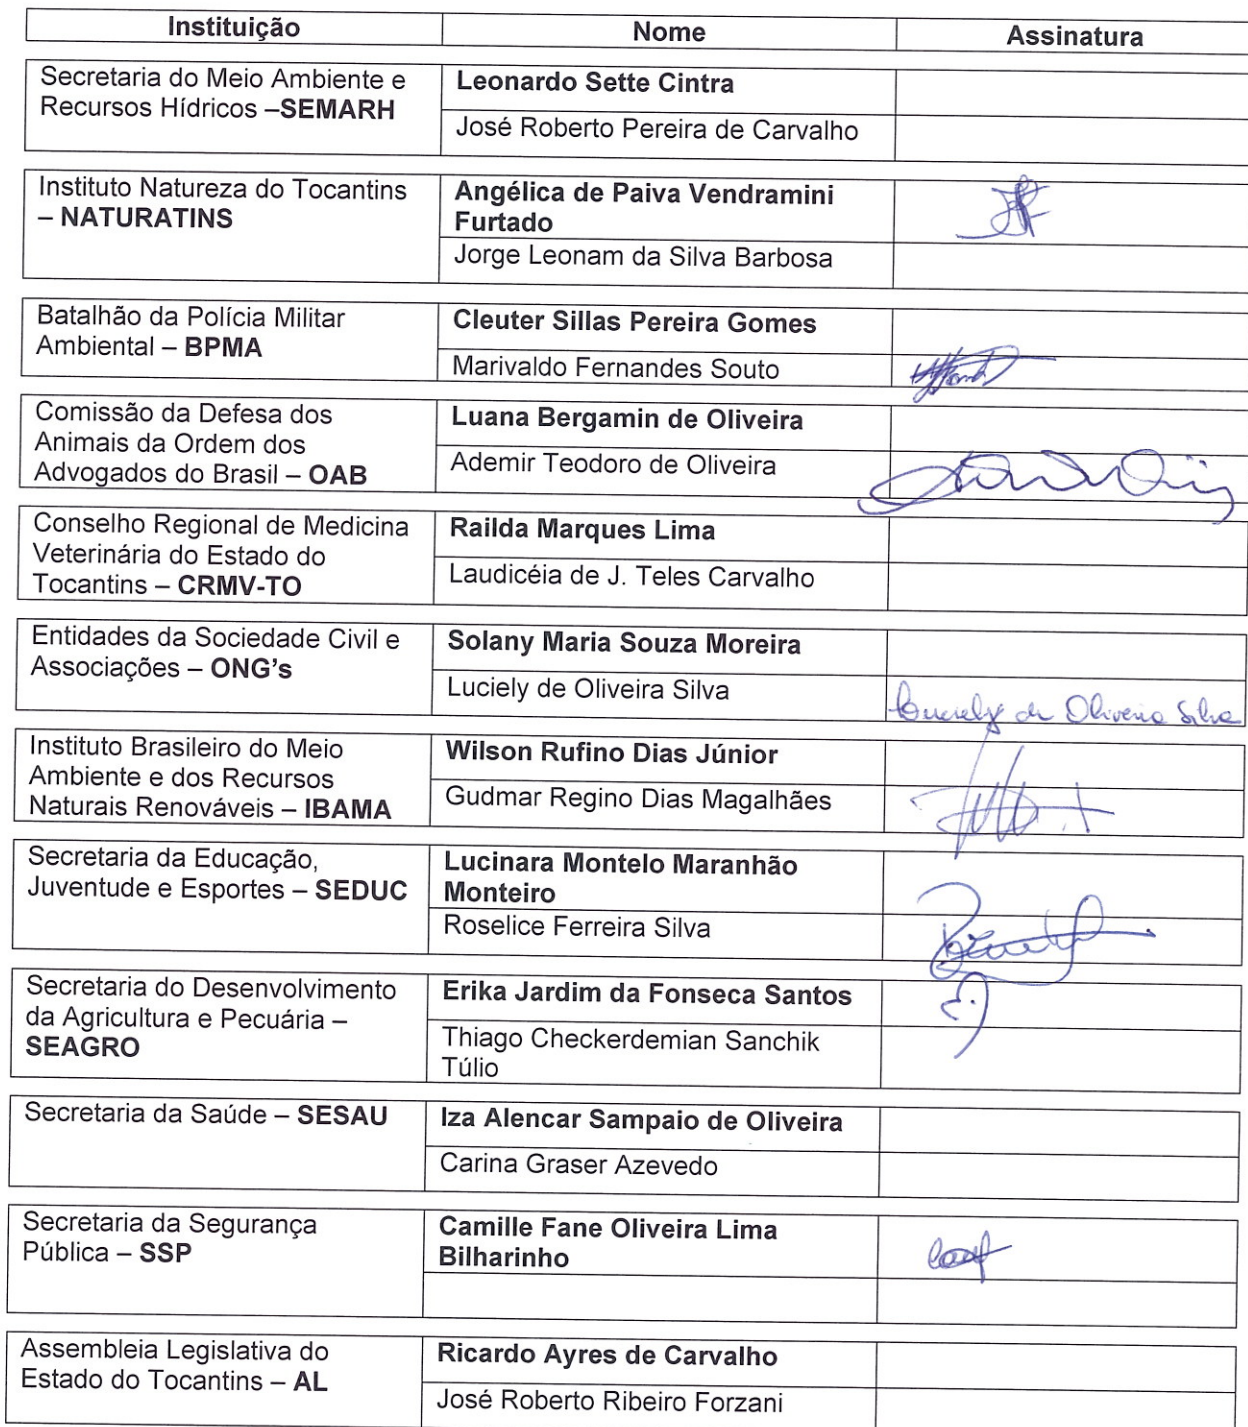 Instituição Nome Assinatura
Secretaria do Meio Ambiente e
Recursos Hídricos –SEMARH
Leonardo Sette Cintra
José Roberto Pereira de Carvalho
Instituto Natureza do Tocantins
– NATURATINS
Angélica de Paiva Vendramini
Furtado
Jorge Leonam da Silva Barbosa
Batalhão da Polícia Militar
Ambiental – BPMA
Cleuter Sillas Pereira Gomes
Marivaldo Fernandes Souto
Comissão da Defesa dos
Animais da Ordem dos
Advogados do Brasil – OAB
Luana Bergamin de Oliveira
Ademir Teodoro de Oliveira
Conselho Regional de Medicina
Veterinária do Estado do
Tocantins – CRMV-TO
Railda Marques Lima
Laudicéia de J. Teles Carvalho
Entidades da Sociedade Civil e
Associações – ONG's
Solany Maria Souza Moreira
Luciely de Oliveira Silva
Luciely de Oliveira Silva
Instituto Brasileiro do Meio
Ambiente e dos Recursos
Naturais Renováveis – IBAMA
Wilson Rufino Dias Júnior
Gudmar Regino Dias Magalhães
Secretaria da Educação,
Juventude e Esportes – SEDUC
Lucinara Montelo Maranhão
Monteiro
Roselice Ferreira Silva
Secretaria do Desenvolvimento
da Agricultura e Pecuária –
SEAGRO
Erika Jardim da Fonseca Santos
Thiago Checkerdemian Sanchik
Túlio
Secretaria da Saúde – SESAU
Iza Alencar Sampaio de Oliveira
Carina Graser Azevedo
Secretaria da Segurança
Pública – SSP
Camille Fane Oliveira Lima
Bilharinho
Assembleia Legislativa do
Estado do Tocantins – AL
Ricardo Ayres de Carvalho
José Roberto Ribeiro Forzani